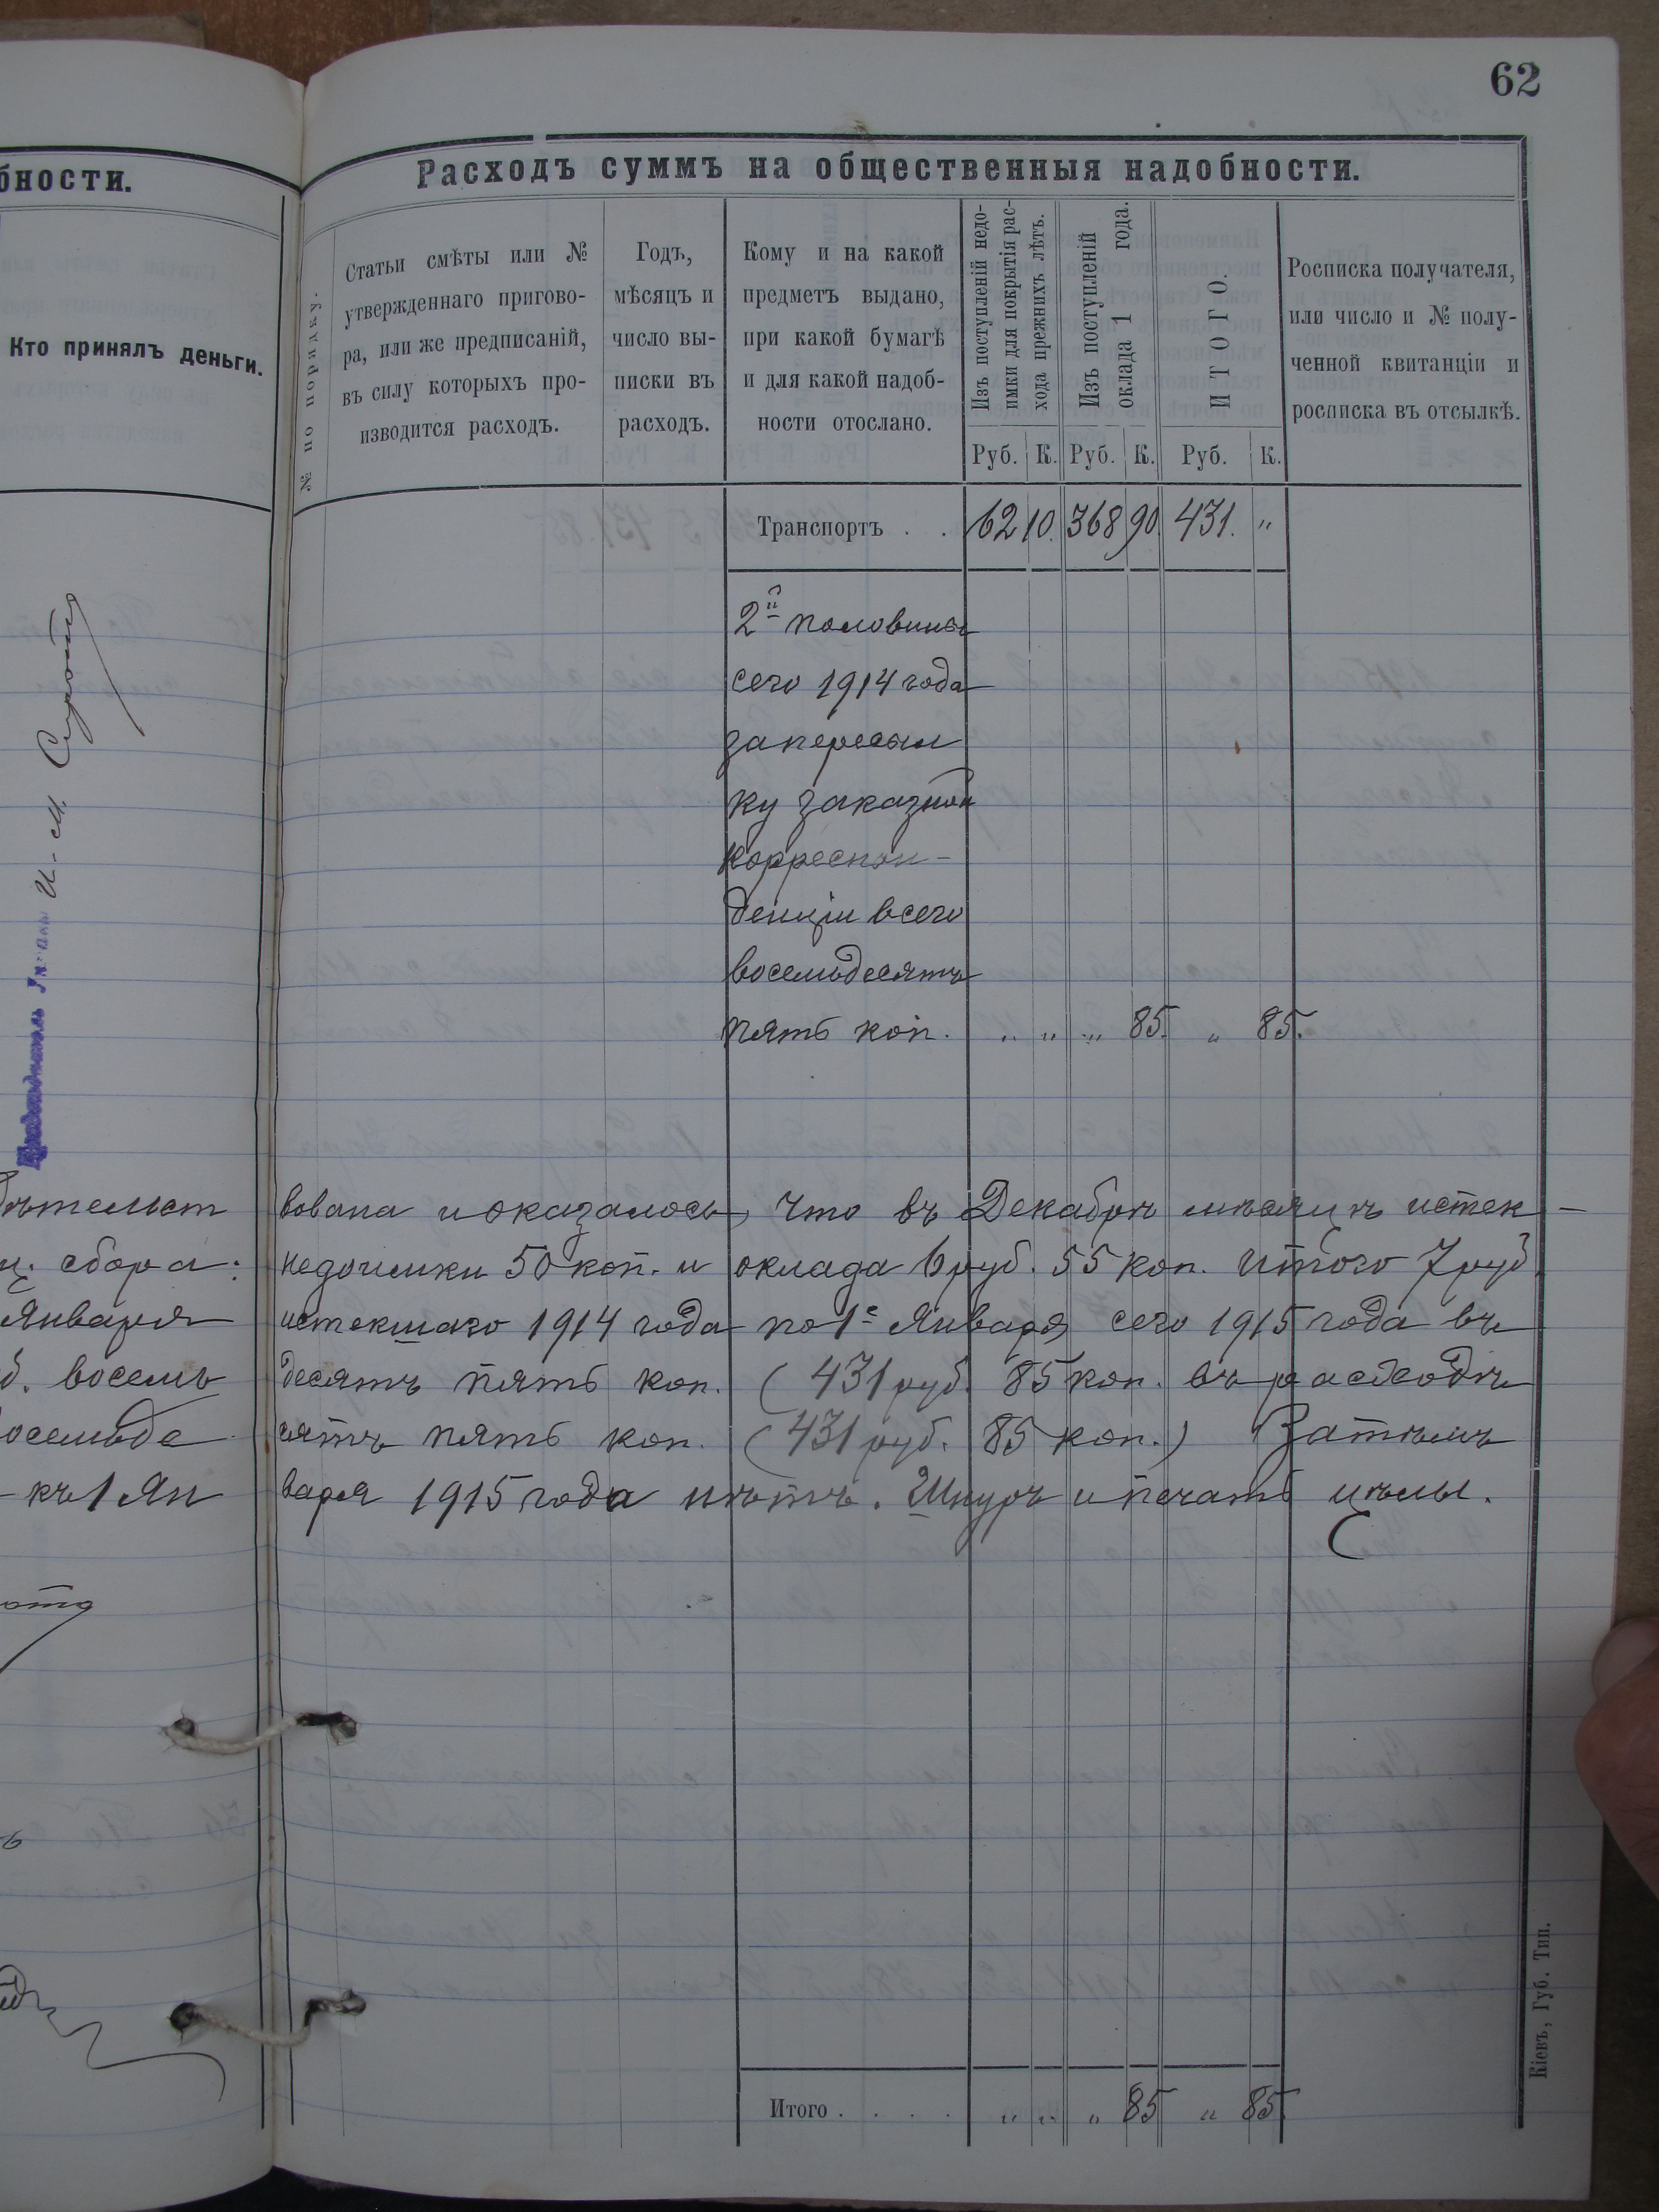 62
бности.
Кто принялъ деньги.
И. М. Сирота
ѣтельст
ц. сбора:
Января
б. восемь
осемьде
къ 1 Ян
ота
Расходъ суммъ на общественныя надобности.
№ по порядку.
Статьи смѣты или №
утвержденнаго пригово-
ра, или же предписаній,
въ силу которыхъ про-
изводится расходъ.
Годъ,
мѣсяцъ и
число вы-
писки въ
расходъ.
Кому и на какой
предметъ выдано,
при какой бумагѣ
и для какой надоб-
ности отослано.
Изъ поступленій недо-
имки для покрытія рас-
хода прежнихъ лѣтъ.
Изъ поступленій
оклада 1 года.
ИТОГО.
Росписка получателя,
или число и № полу-
ченной квитанціи и
росписка въ отсылкѣ.
Руб. К. Руб. К. Руб. К.
Транспортъ . . 62 10. 368 90. 431. "
2й половины
сего 1914 года
за пересыл
ку заказной
корреспон-
денціи всего
восемьдесятъ
пять коп. " " " 85. " 85.
вована и оказалось, что въ Декабрѣ мѣсяцѣ истек-
недоимки 50 коп. и оклада 6 руб. 55 коп. итого 7 руб.
истекшаго 1914 года по 1е Января сего 1915 года въ
десятъ пять коп. (431 руб. 85 коп. въ расходѣ
сятъ пять коп. (431 руб. 85 коп.) Затѣмъ
варя 1915 года нѣтъ. Шнуръ и печать цѣлы.
Итого . . . . " " " 85 " 85.
Кіевъ, Губ. Тип.